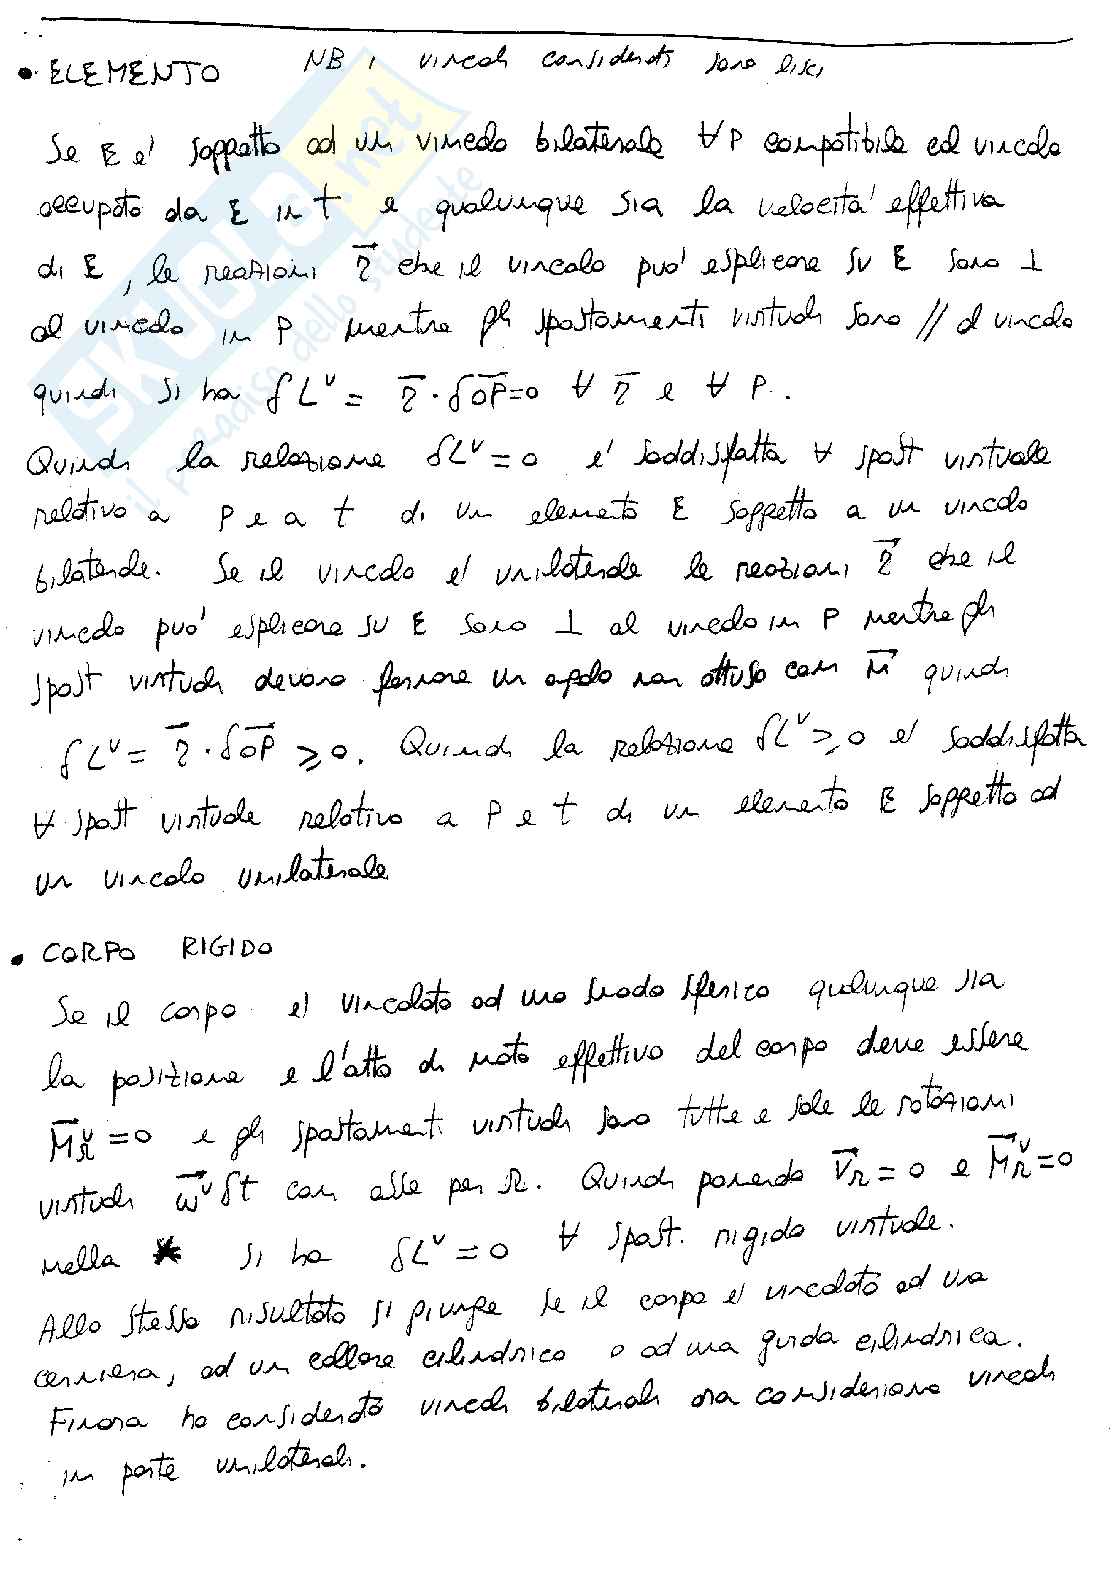 • ELEMENTO NB i vincoli considerati sono lisci
Se E e' soggetto ad un vincolo bilaterale ∀P compatibile col vincolo
occupato da E in t e qualunque sia la velocità effettiva
di E, le reazioni r⃗ che il vincolo può esplicare su E sono ⊥
al vincolo in P mentre gli spostamenti virtuali sono // al vincolo
quindi si ha δLᵛ = r⃗ · δOP⃗ = 0 ∀ r⃗ e ∀ P.
Quindi la relazione δLᵛ = 0 e' soddisfatta ∀ spost virtuale
relativo a P e a t di un elemento E soggetto a un vincolo
bilaterale. Se il vincolo e' unilaterale le reazioni r⃗ che il
vincolo puo' esplicare su E sono ⊥ al vincolo in P mentre gli
spost virtuali devono formare un angolo non ottuso con n⃗ quindi
δLᵛ = r⃗ · δOP⃗ ≥ 0. Quindi la relazione δLᵛ ≥ 0 e' soddisfatta
∀ spost virtuale relativo a P e t di un elemento E soggetto ad
un vincolo unilaterale
• CORPO RIGIDO
Se il corpo e' vincolato ad uno snodo sferico qualunque sia
la posizione e l'atto di moto effettivo del corpo deve essere
M⃗ᵛ_Ω = 0 e gli spostamenti virtuali sono tutte e sole le rotazioni
virtuali ω⃗ᵛ δt con asse per Ω. Quindi ponendo V⃗_Ω = 0 e M⃗ᵛ_Ω = 0
nella * si ha δLᵛ = 0 ∀ spost. rigido virtuale.
Allo stesso risultato si giunge se il corpo e' vincolato ad una
cerniera, ad un collare cilindrico o ad una guida cilindrica.
Finora ho considerato vincoli bilaterali ora consideriamo vincoli
in parte unilaterali.
SKUOLA.net
il paradiso dello studente